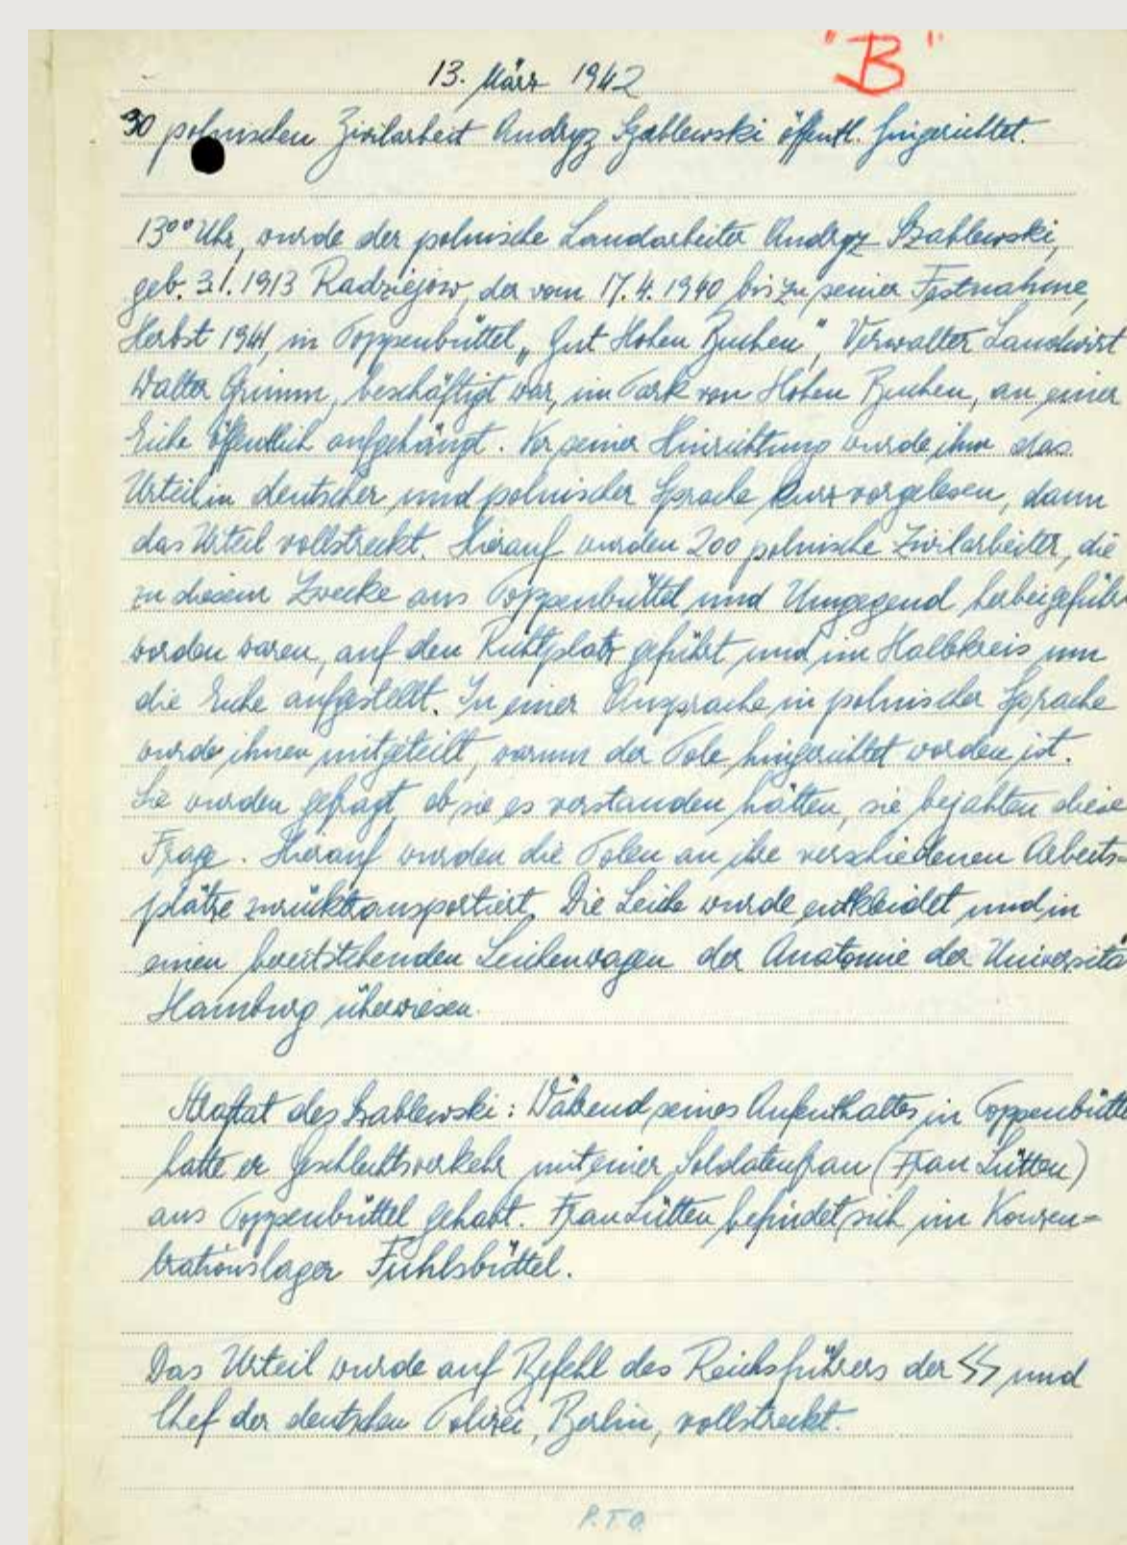 "B"
13. März 1942
30 polnischen Zivilarbeit Andryz Szablewski öffentl. hingerichtet.
13⁰⁰ Uhr, wurde der polnische Landarbeiter Andryz Szablewski,
geb. 3.1.1913 Radziejow, der vom 17.4.1940 bis zu seiner Festnahme,
Herbst 1941, in Poppenbüttel „Gut Hohen Buchen", Verwalter Landwirt
Walter Grimm, beschäftigt war, im Park von Hohen Buchen, an einer
Eiche öffentlich aufgehängt. Vor seiner Hinrichtung wurde ihm das
Urteil in deutscher und polnischer Sprache kurz vorgelesen, dann
das Urteil vollstreckt. Hierauf wurden 200 polnische Zivilarbeiter, die
zu diesem Zwecke aus Poppenbüttel und Umgegend herbeigeführ
worden waren, auf den Richtplatz geführt und im Halbkreis um
die Eiche aufgestellt. In einer Ansprache in polnischer Sprache
wurde ihnen mitgeteilt, warum der Pole hingerichtet worden ist.
Sie wurden gefragt, ob sie es verstanden hätten, sie bejahten diese
Frage. Hierauf wurden die Polen an ihre verschiedenen Arbeits=
plätze zurücktransportiert. Die Leiche wurde entkleidet und in
einen bereitstehenden Leichenwagen der Anatomie der Universitä
Hamburg überwiesen.
des Szablewski: Während seines Aufenthaltes in Poppenbütte
hatte er Geschlechtsverkehr mit einer Soldatenfrau (Frau Lütten)
aus Poppenbüttel gehabt. Frau Lütten befindet sich im Konzen=
trationslager Fuhlsbüttel.
Das Urteil wurde auf Befehl des Reichsführers der SS und
Chef der deutschen Polizei, Berlin, vollstreckt.
P.T.O.